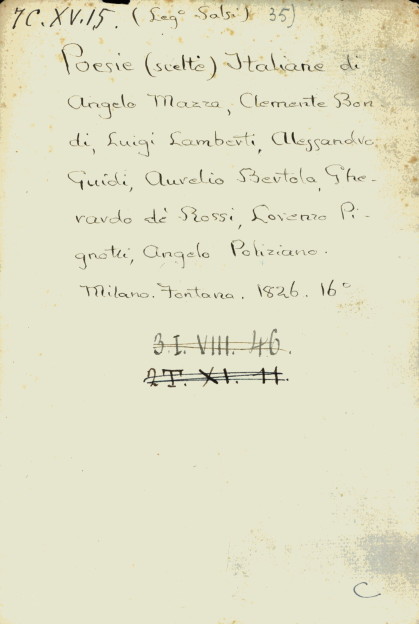 7C.XV.15. (Leg° Salsi) 35)
Poesie (scelte) Italiane di
Angelo Mazza, Clemente Bon
di, Luigi Lamberti, Alessandro
Guidi, Aurelio Bertola, Ghe-
rardo de' Rossi, Lorenzo Pi-
gnotti, Angelo Poliziano.
Milano. Fontana. 1826. 16°
3.I. VIII. 46.
2T. XI. 11.
C